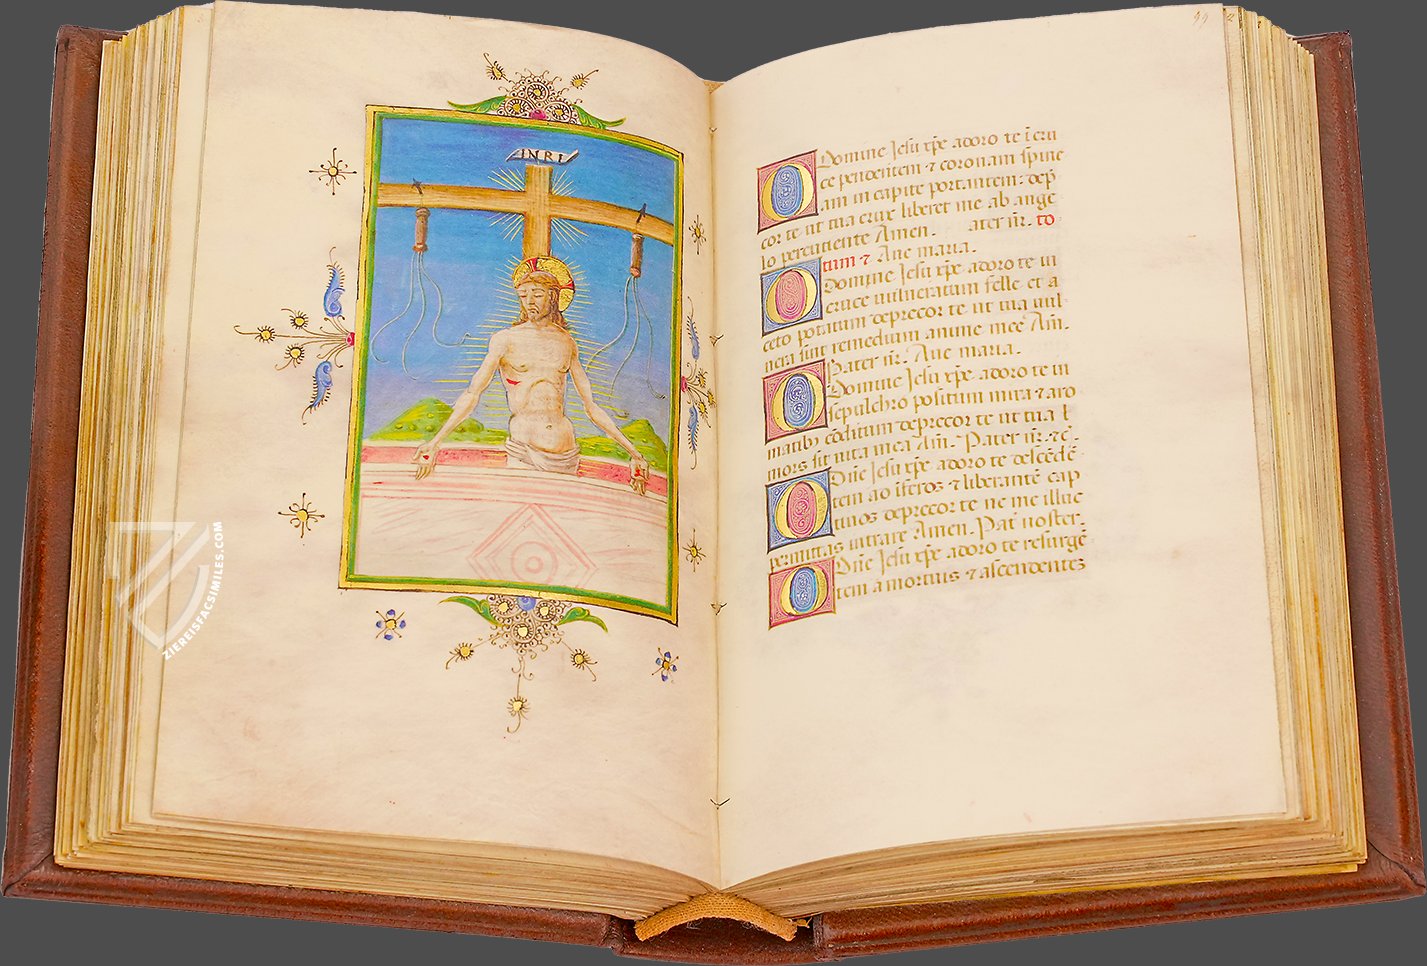 INRI
99
Domine Jesu xp̄e adoro te ī cru
ce pendentem ⁊ coronam spine
am in capite portantem: dep̄
cor te ut tua crux liberet me ab ange
lo percutiente Amen. ater nr̄. to
tum ⁊ Ave maria.
Domine Jesu xp̄e adoro te in
cruce vulneratum felle et a
ceto potatum deprecor te ut tua vul
nera sint remedium anime mee Am̄.
Pater nr̄. Ave maria.
Domine Jesu xp̄e adoro te in
sepulchro positum mira ⁊ aro
matibꝫ conditum deprecor te ut tua
mors sit vita mea Am̄. Pater nr̄. ⁊c̄.
Dn̄e Jesu xp̄e adoro te descēdē
tem ad īferos ⁊ liberantē cap
tivos deprecor te ne me illuc
permittas intrare Amen. Pat̄ noster.
Dn̄e Jesu xp̄e adoro te resurgē
tem a mortuis ⁊ ascendentes
ZIEREISFACSIMILES.COM